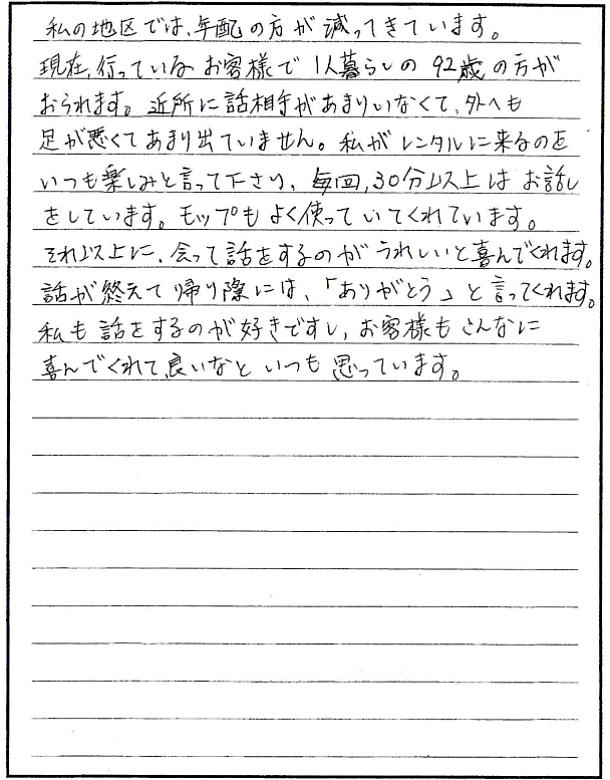 私の地区では、年配の方が減ってきています。
現在、行っているお客様で1人暮らしの92歳の方が
おられます。近所に話相手があまりいなくて、外へも
足が悪くてあまり出ていません。私がレンタルに来るのを
いつも楽しみと言って下さり、毎回、30分以上はお話し
をしています。モップもよく使っていてくれています。
それ以上に、会って話をするのがうれしいと喜んでくれます。
話が終えて帰り際には、「ありがとう」と言ってくれます。
私も話をするのが好きですし、お客様もこんなに
喜んでくれて、良いなといつも思っています。